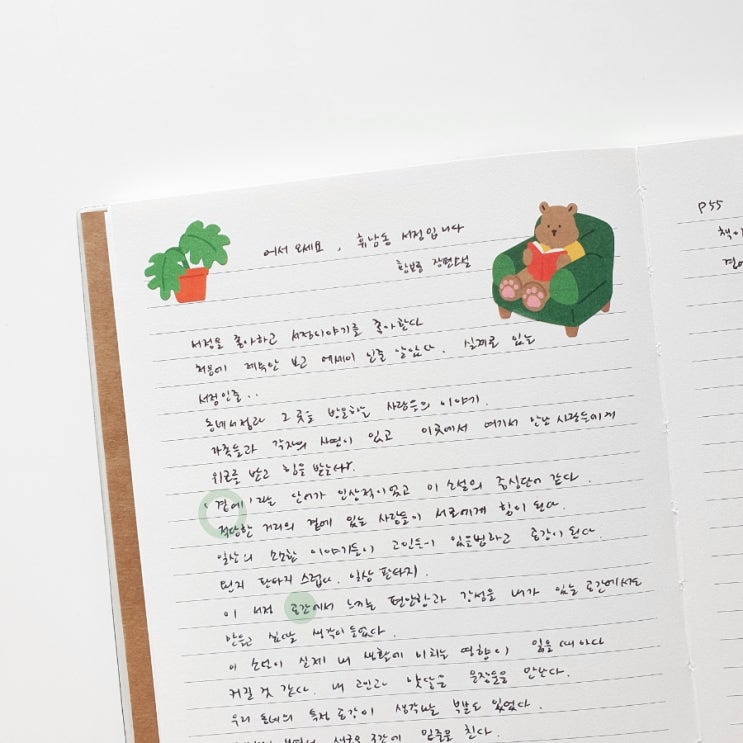 어서 오세요, 휴남동 서점입니다
황보름 장편소설
서점을 좋아하고 서점이야기를 좋아한다
처음에 제목만 보고 에세이 인줄 알았다. 실제로 있는
서점인줄..
동네서점과 그 곳을 방문하는 사람들의 이야기.
가족들과 각자의 사연이 있고 이곳에서 여기서 만난 사람들에게
위로를 받고 힘을 받는다.
'곁에'라는 단어가 인상적이었고 이 소설의 중심단어 같다.
적당한 거리의 곁에 있는 사람들이 서로에게 힘이 된다.
일상의 소소한 이야기들이 고민들이 있을법하고 공감이 된다.
뭔지 판타지스럽다. 일상 판타지.
이 서점 공간에서 느끼는 편안함과 감성을 내가 있는 공간에서도
만들고 싶다는 생각이 들었다.
이 소설이 실제 내 생활에 미치는 영향이 읽을 때 마다
커질 것 같다. 내 고민과 맞닿은 문장들을 만난다.
우리 동네의 특정 공간이 생각나는 부분도 있었다.
새로운 공간에 밑줄을 친다.
P55
책이
곁에